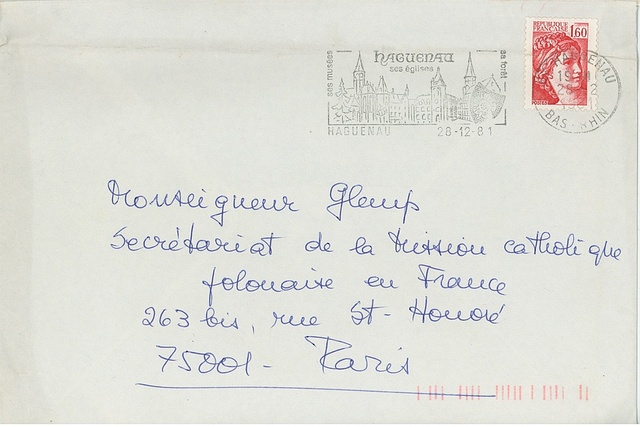 ses musées
HAGUENAU
ses églises
sa forêt
HAGUENAU 28-12-81
REPUBLIQUE FRANÇAISE 1,60
HAGUENAU
BAS-RHIN
Monseigneur Glemp
Secrétariat de la Mission catholique
polonaise en France
263 bis, rue St-Honoré
75001 - Paris